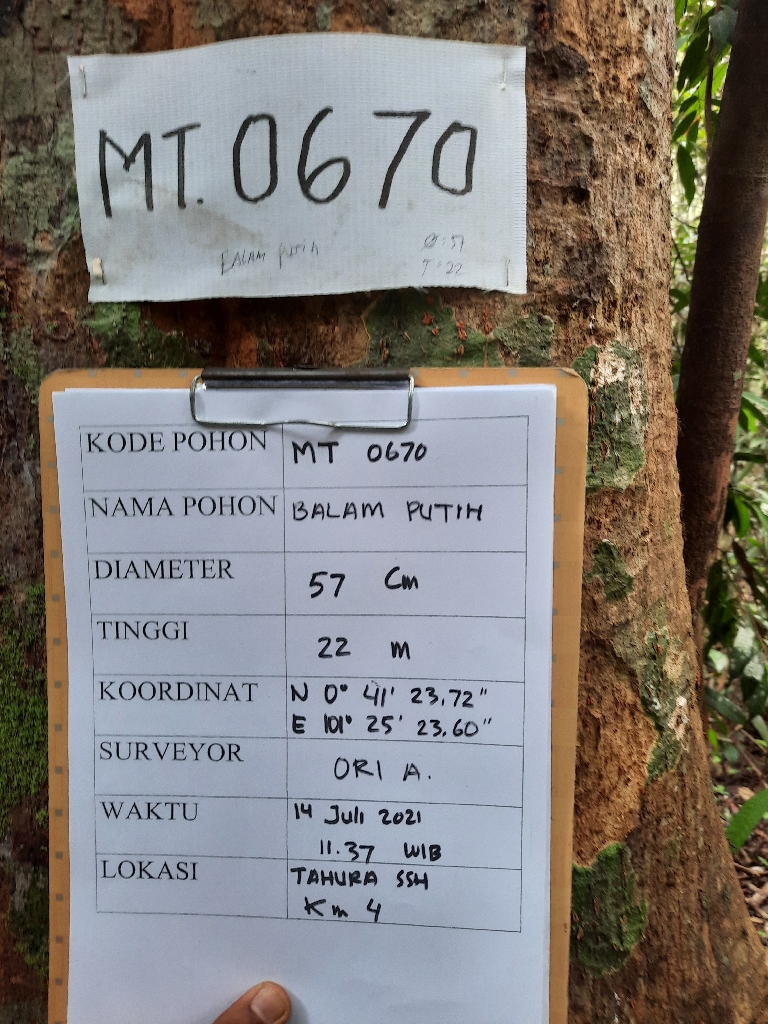 MT. 0670
BALAM PUTIH
Ø: 57
T: 22
KODE POHON MT 0670
NAMA POHON BALAM PUTIH
DIAMETER 57 Cm
TINGGI 22 m
KOORDINAT N 0° 41' 23.72"
E 101° 25' 23.60"
SURVEYOR ORI A.
WAKTU 14 Juli 2021
11.37 WIB
LOKASI TAHURA SSH
Km 4